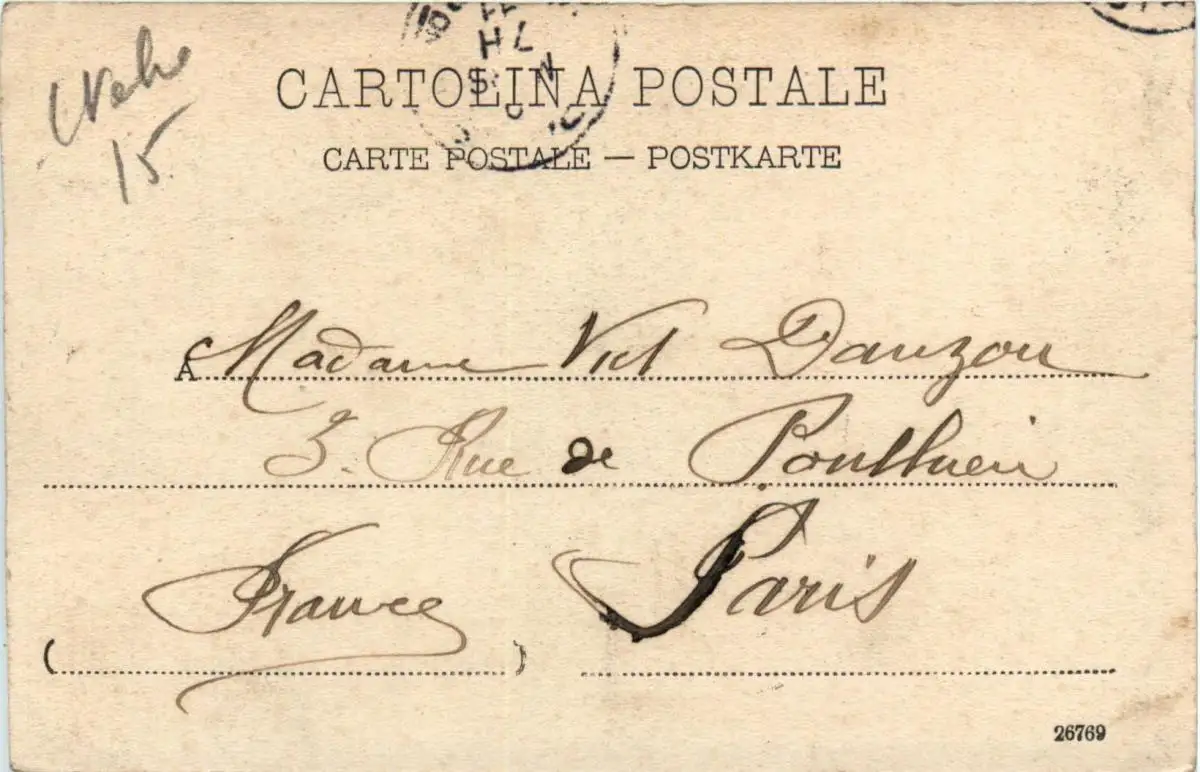 CARTOLINA POSTALE
CARTE POSTALE — POSTKARTE
15
A Madame Vict Dauzon
3. Rue de Ponthieu
Paris
(France)
26769